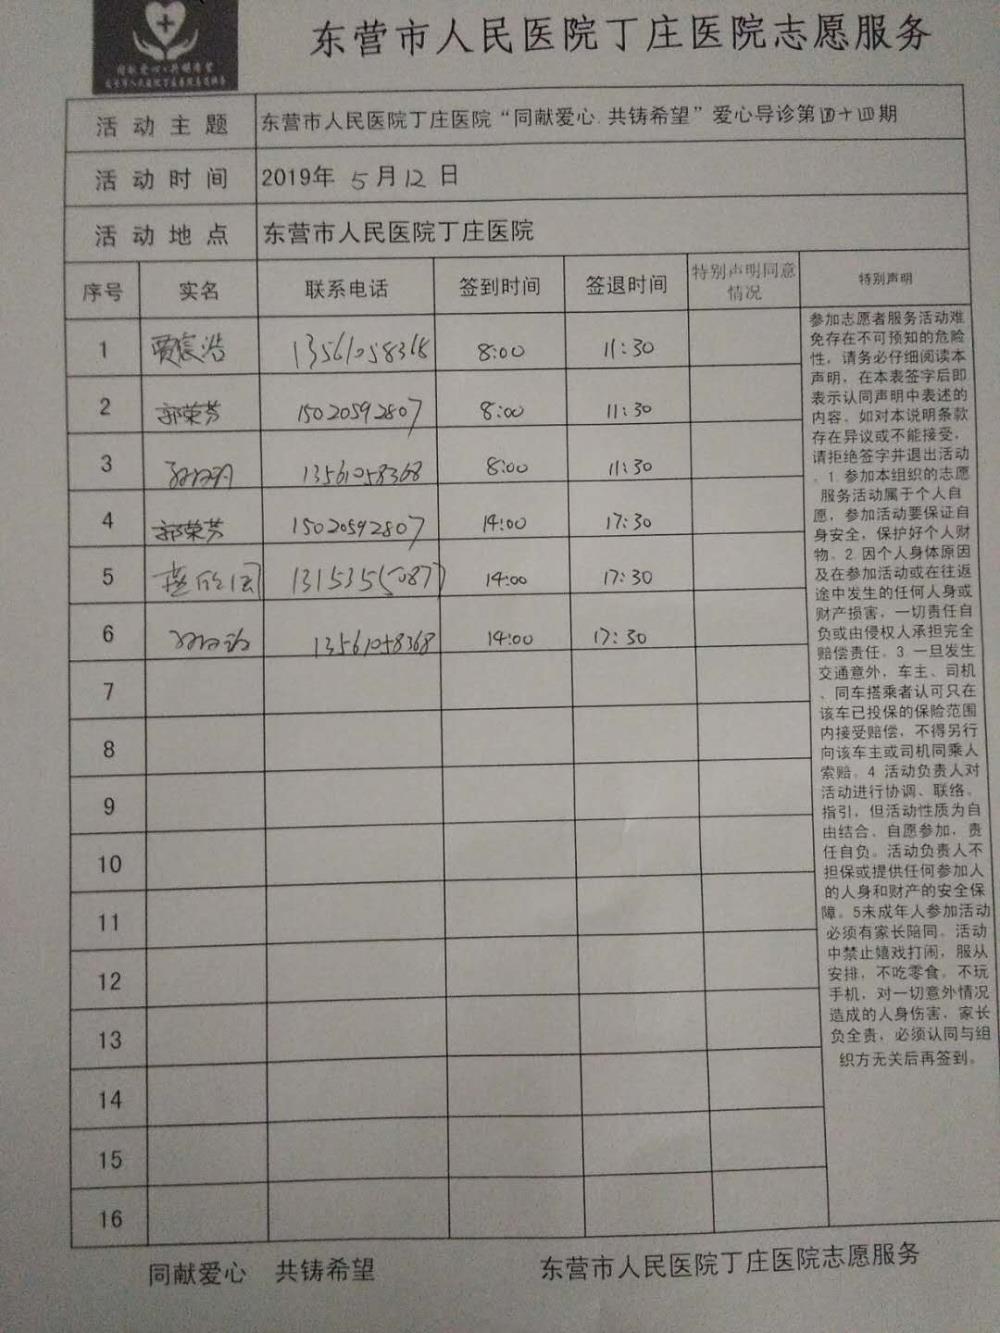 同献爱心·共铸希望
东营市人民医院丁庄医院志愿服务
活动主题 东营市人民医院丁庄医院“同献爱心.共铸希望”爱心导诊第四十四期
活动时间 2019年 5 月 12 日
活动地点 东营市人民医院丁庄医院
序号 实名 联系电话 签到时间 签退时间 特别声明同意情况 特别声明
1 贾宸浩 13561058368 8:00 11:30
2 郭荣芳 15020592807 8:00 11:30
3 13561058368 8:00 11:30
4 郭荣芳 15020592807 14:00 17:30
5 14:00 17:30
6 13561058368 14:00 17:30
7
8
9
10
11
12
13
14
15
16
参加志愿者服务活动难
免存在不可预知的危险
性，请务必仔细阅读本
声明，在本表签字后即
表示认同声明中表述的
内容。如对本说明条款
存在异议或不能接受，
请拒绝签字并退出活动
。1.参加本组织的志愿
服务活动属于个人自
愿，参加活动要保证自
身安全，保护好个人财
物。2.因个人身体原因
及在参加活动或在往返
途中发生的任何人身或
财产损害，一切责任自
负或由侵权人承担完全
赔偿责任。3.一旦发生
交通意外，车主、司机
、同车搭乘者认可只在
该车已投保的保险范围
内接受赔偿，不得另行
向该车主或司机同乘人
索赔。4.活动负责人对
活动进行协调、联络、
指引，但活动性质为自
由结合、自愿参加，责
任自负。活动负责人不
担保或提供任何参加人
的人身和财产的安全保
障。5未成年人参加活动
必须有家长陪同。活动
中禁止嬉戏打闹，服从
安排，不吃零食，不玩
手机，对一切意外情况
造成的人身伤害，家长
负全责，必须认同与组
织方无关后再签到。
同献爱心 共铸希望 东营市人民医院丁庄医院志愿服务